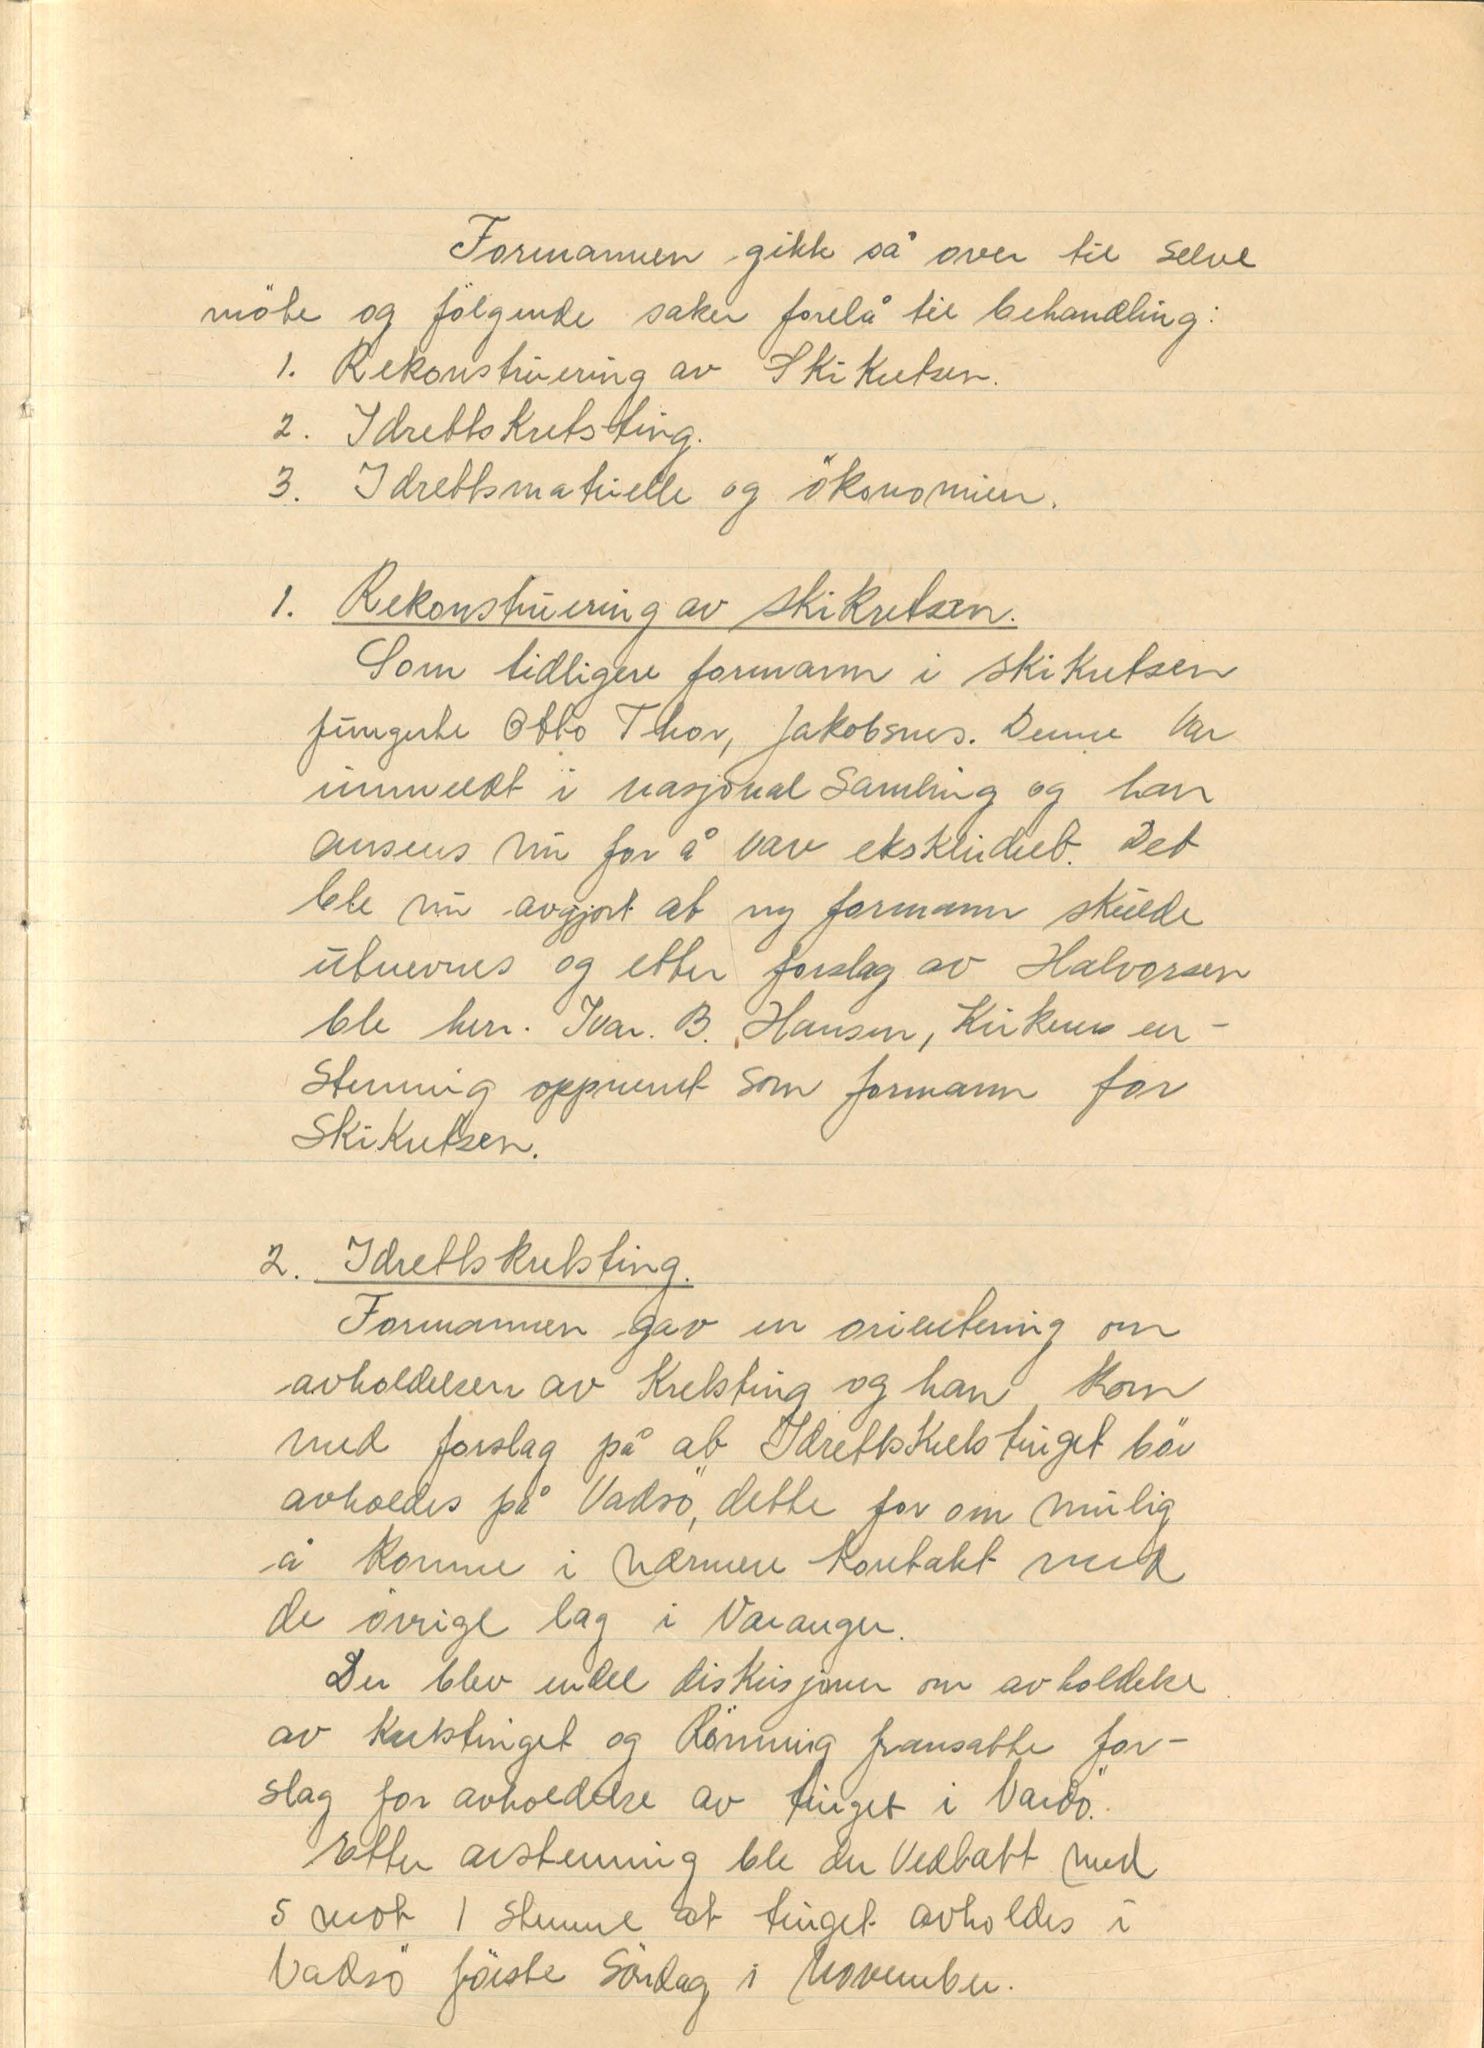 Formannen gikk så over til selve
möte og fölgende saker forelå til behandling:
1. Rekonstruering av Skikretsen.
2. Idrettskretsting.
3. Idrettsmateriell og ökonomien.
1. Rekonstruering av skikretsen.
Som tidligere formann i skikretsen
fungerte Otto Thor, Jakobsnes. Denne var
innmeldt i nasjonal Samling og han
ansees nu for å være ekskludert. Det
ble nu avgjort at ny formann skulde
utnevnes og etter forslag av Halvorsen
ble herr. Ivar. B. Hansen, Kirkenes en-
stemmig oppnevnt som formann for
Skikretsen.
2. Idrettskretsting.
Formannen gav en orientering om
avholdelsen av Kretsting og han kom
med forslag på at Idrettskretstinget bör
avholdes på Vadsö, dette for om mulig
å komme i nærmere kontakt med
de övrige lag i Varanger.
Der blev endel diskusjoner om avholdelse
av Kretstinget og Rönning fransatte for-
slag for avholdelse av tinget i Vardö.
Etter avstemning ble der Vedtatt med
5 mot 1 stemme at tinget avholdes i
Vadsö förste Söndag i November.